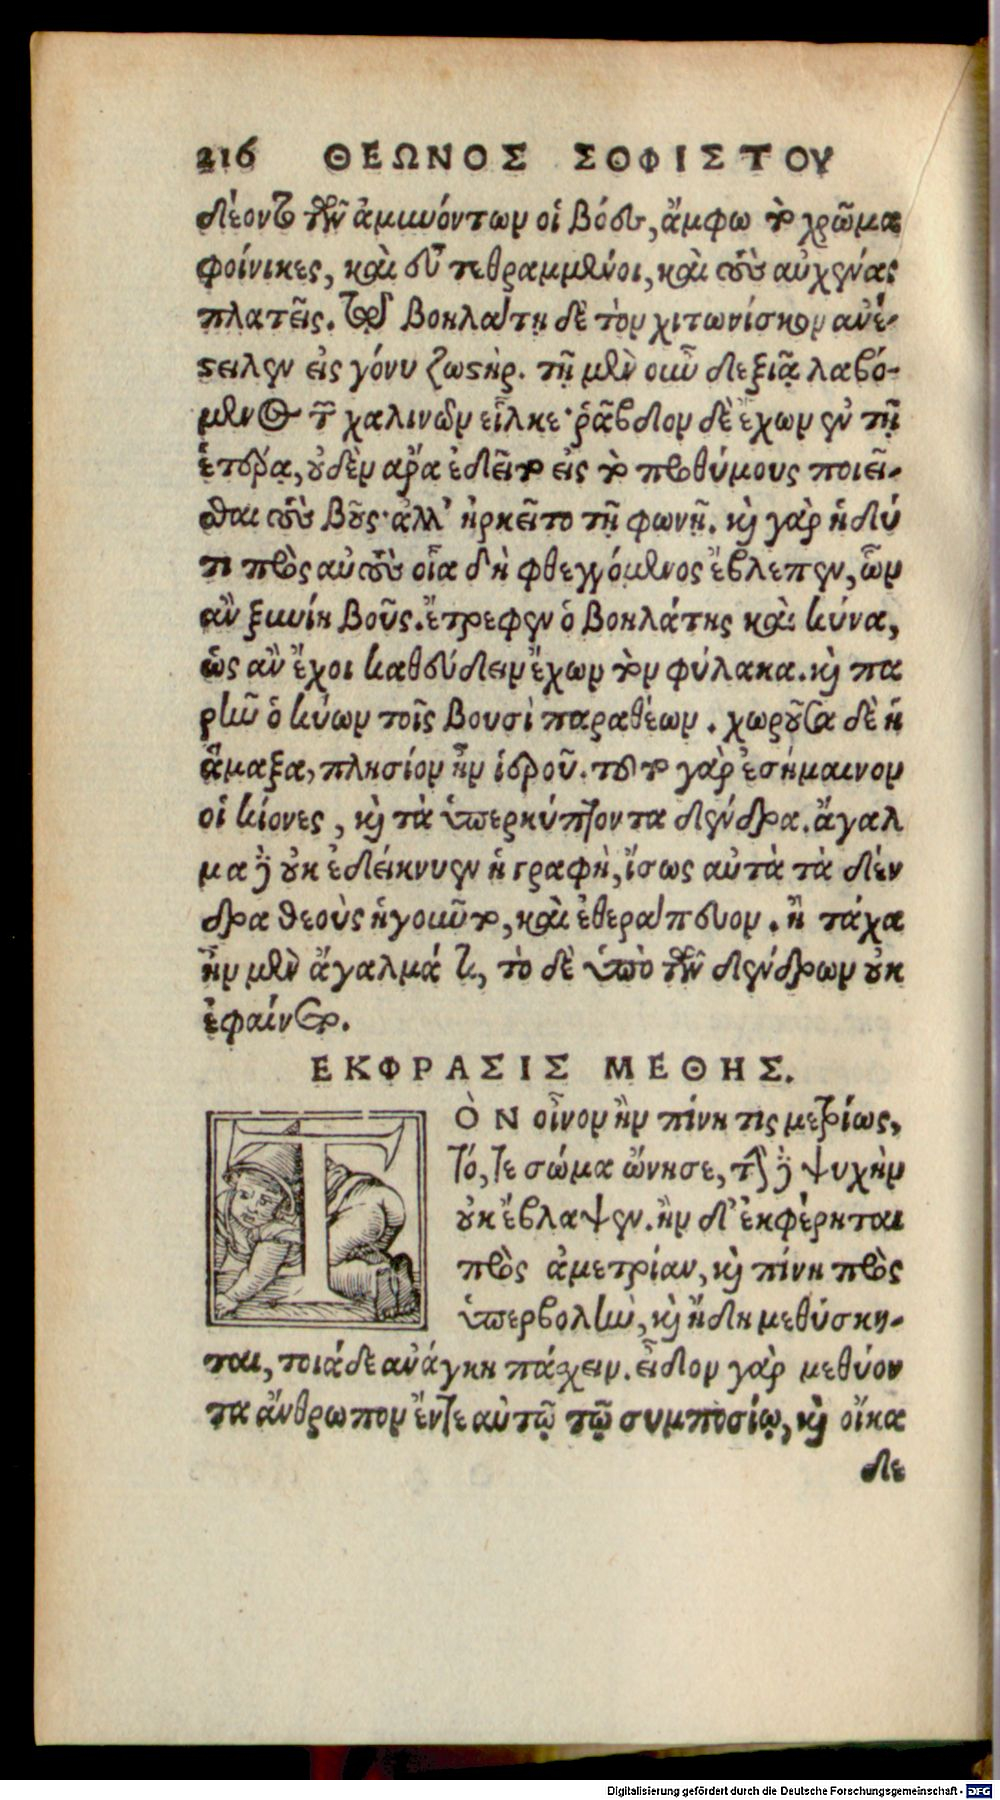 216 ΘΕΩΝΟΣ ΣΟΦΙΣΤΟΥ
δέοντο τῶν ἀμυνόντων οἱ βόες, ἄμφω τὸ χρῶμα
φοίνικες, καὶ εὖ τεθραμμένοι, καὶ τοὺς αὐχένας
πλατεῖς. τῷ δὲ βοηλάτῃ δὲ τὸν χιτωνίσκον ἀνέ-
στειλεν εἰς γόνυ ζωστήρ. τῇ μὲν οὖν δεξιᾷ λαβό-
μενος τῶν χαλινῶν εἷλκε· ῥάβδον δὲ ἔχων ἐν τῇ
ἑτέρᾳ, οὐδὲν ἄρα ἐδεῖτο εἰς τὸ προθύμους ποιεῖ-
σθαι τοὺς βοῦς· ἀλλ' ἠρκεῖτο τῇ φωνῇ. καὶ γὰρ ἡδύ
τι πρὸς αὐτοὺς οἷα δὴ φθεγγόμενος ἔβλεπεν, ὧν
ἂν ξυνίῃ βοῦς. ἔτρεφεν ὁ βοηλάτης καὶ κύνα,
ὡς ἂν ἔχοι καθεύδειν ἔχων τὸν φύλακα. καὶ πα
ρῆν ὁ κύων τοῖς βουσὶ παραθέων. χωροῦσα δὲ ἡ
ἅμαξα, πλησίον ἦν ἱεροῦ. τοῦτο γὰρ ἐσήμαινον
οἱ κίονες, καὶ τὰ ὑπερκύπτοντα δένδρα. ἄγαλ
μα δὲ οὐκ ἐδείκνυεν ἡ γραφὴ, ἴσως αὐτὰ τὰ δέν
δρα θεοὺς ἡγοῦντο, καὶ ἐθεράπευον. ἢ τάχα
ἦν μὲν ἄγαλμά τι, τὸ δὲ ὑπὸ τῶν δένδρων οὐκ
ἐφαίνετο.
ΕΚΦΡΑΣΙΣ ΜΕΘΗΣ.
ΤὸΝ οἶνον ἢν πίνῃ τις μετρίως,
τό, τε σώμα ὤνησε, τὴν δὲ ψυχὴν
οὐκ ἔβλαψεν. ἢν δ' ἐκφέρηται
πρὸς ἀμετρίαν, καὶ πίνῃ πρὸς
ὑπερβολὴν, καὶ ἤδη μεθύσκη-
ται, τοιάδε ἀνάγκη πάσχειν. εἶδον γὰρ μεθύον
τα ἄνθρωπον ἔν τε αὐτῷ τῷ συμποσίῳ, καὶ οἴκα
δε
Digitalisierung gefördert durch die Deutsche Forschungsgemeinschaft - DFG